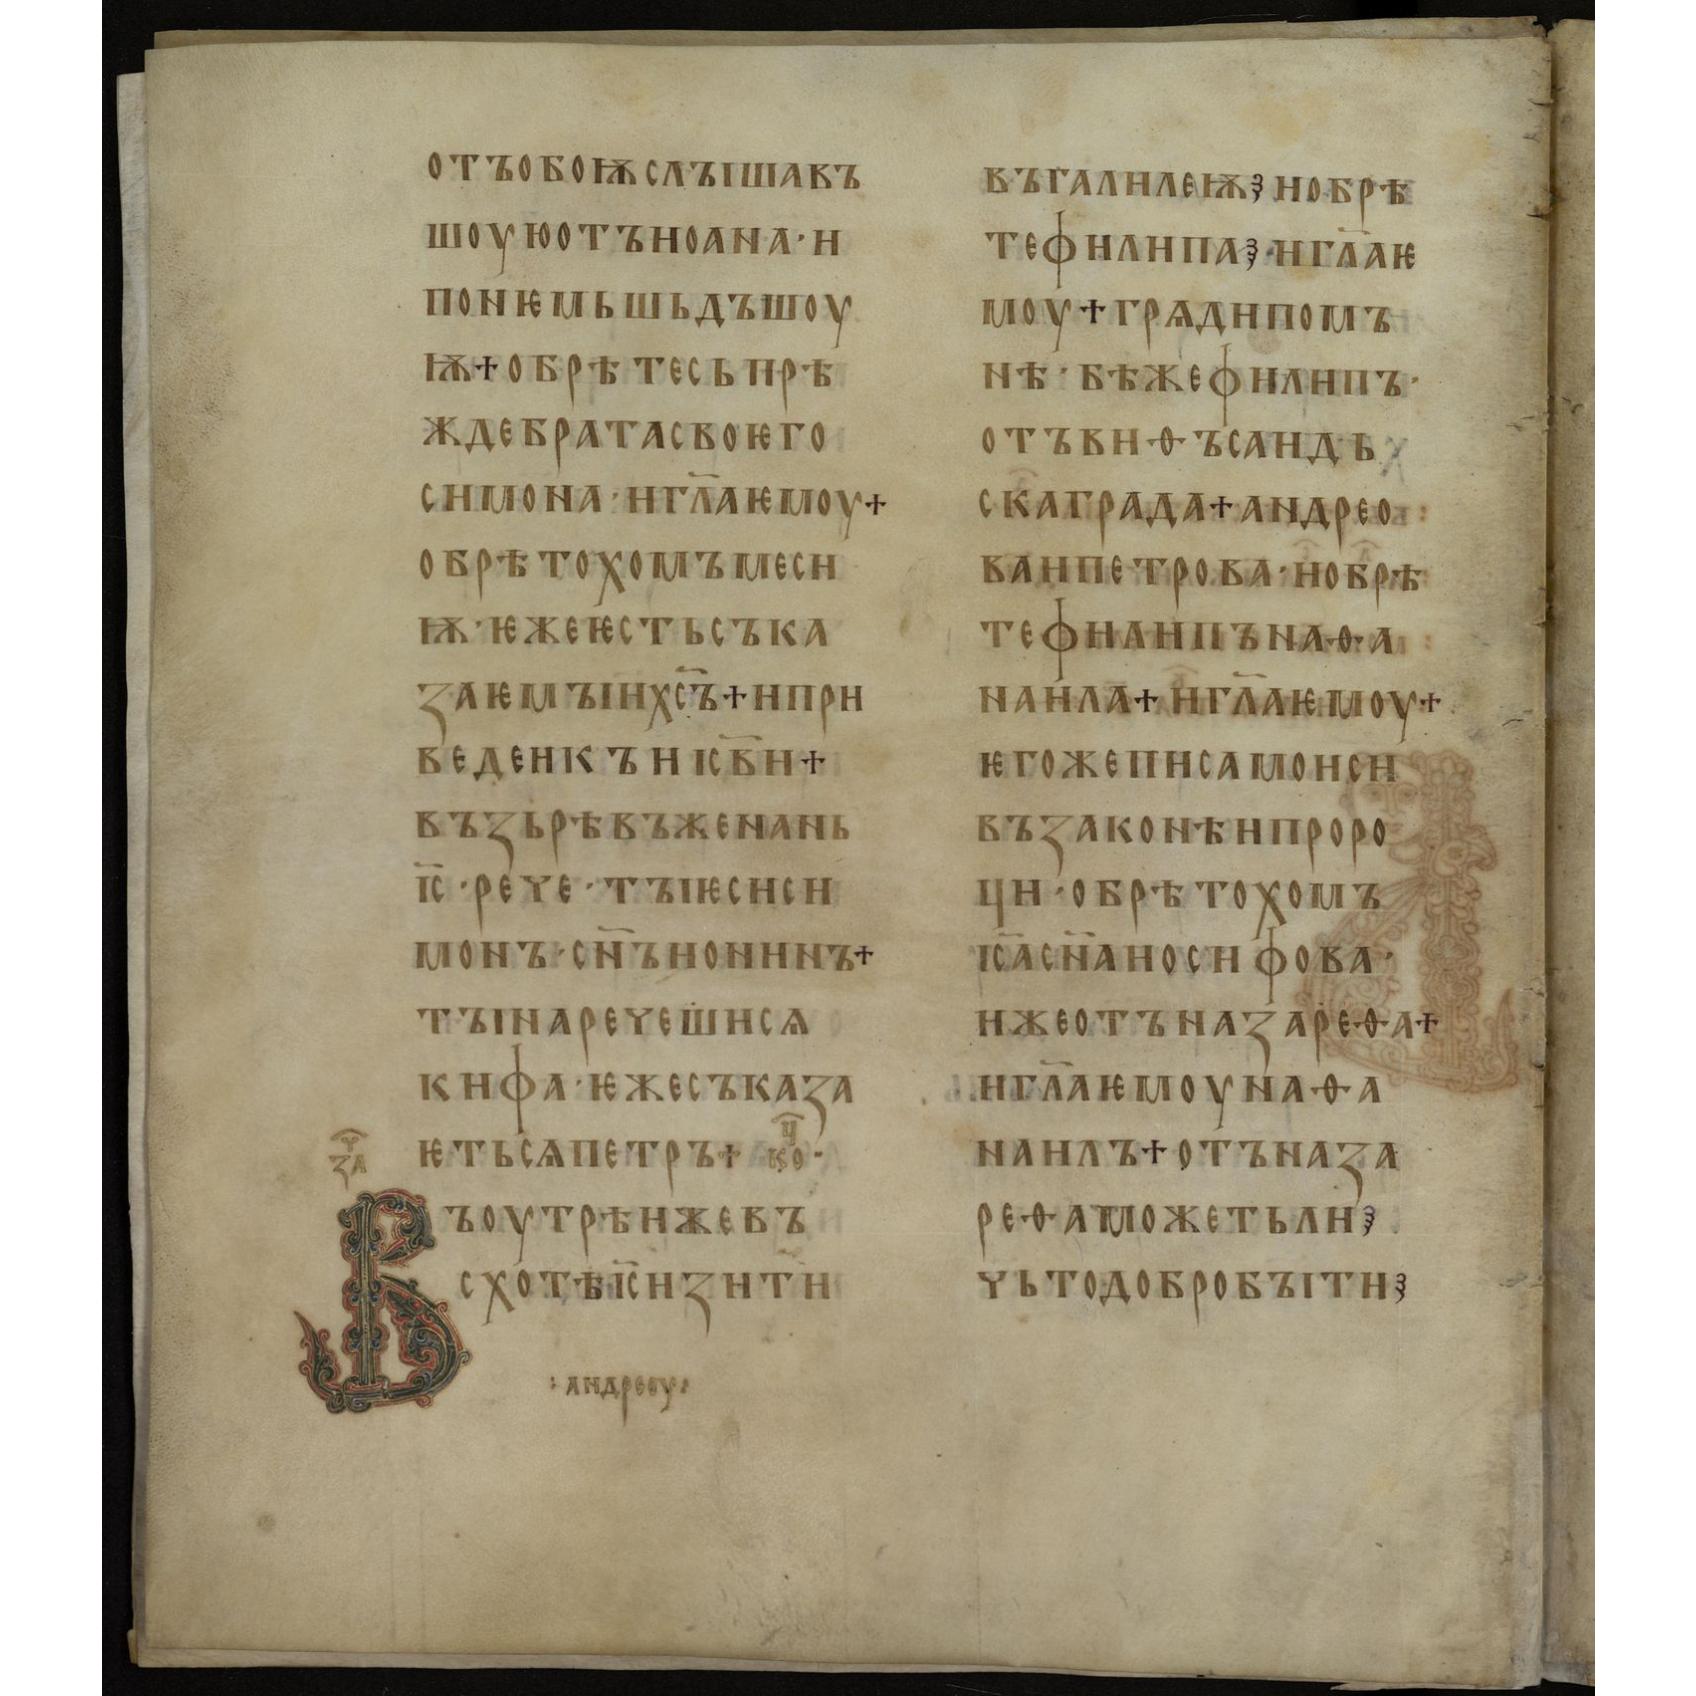 отъобоѭслъішавъ
шоуюотъиоана·и
понѥмьшьдъшоу
ѭ+обрѣтесьпрѣ
ждебратасвоѥго
симона·игл҃аѥмоу+
обрѣтохомъмеси
ѭ·ѥжеѥстьсъка
заѥмъіихс҃ъ+ипри
ведеикъиісв҃и+
възьрѣвъженань
іс҃·рече·тъіѥсиси
монъ·сн҃ъионинъ+
тъінаречешисѧ
кифа·ѥжесъказа
ѥтьсѧпетръ+ кц҃о·
за ч҃
Въоутрѣижевъ
схотѣіс҃изити
:андреоу:
въгалилеѭҙиобрѣ
тефилипаҙ·игл҃аѥ
моу+грѧдипомъ
нѣ·бѣжефилипъ·
отъвиѳъсаидь
скаграда+андрео
ваипетрова·иобрѣ
тефилипънаѳа
наила+игл҃аѥмоу+
ѥгожеписамоиси
възаконѣипроро
ци·обрѣтохомъ
іс҃асн҃аиосифова·
ижеотъназареѳа+
игл҃аѥмоунаѳа
наилъ+отъназа
реѳаможетьлиҙ
чьтодобробъітиҙ